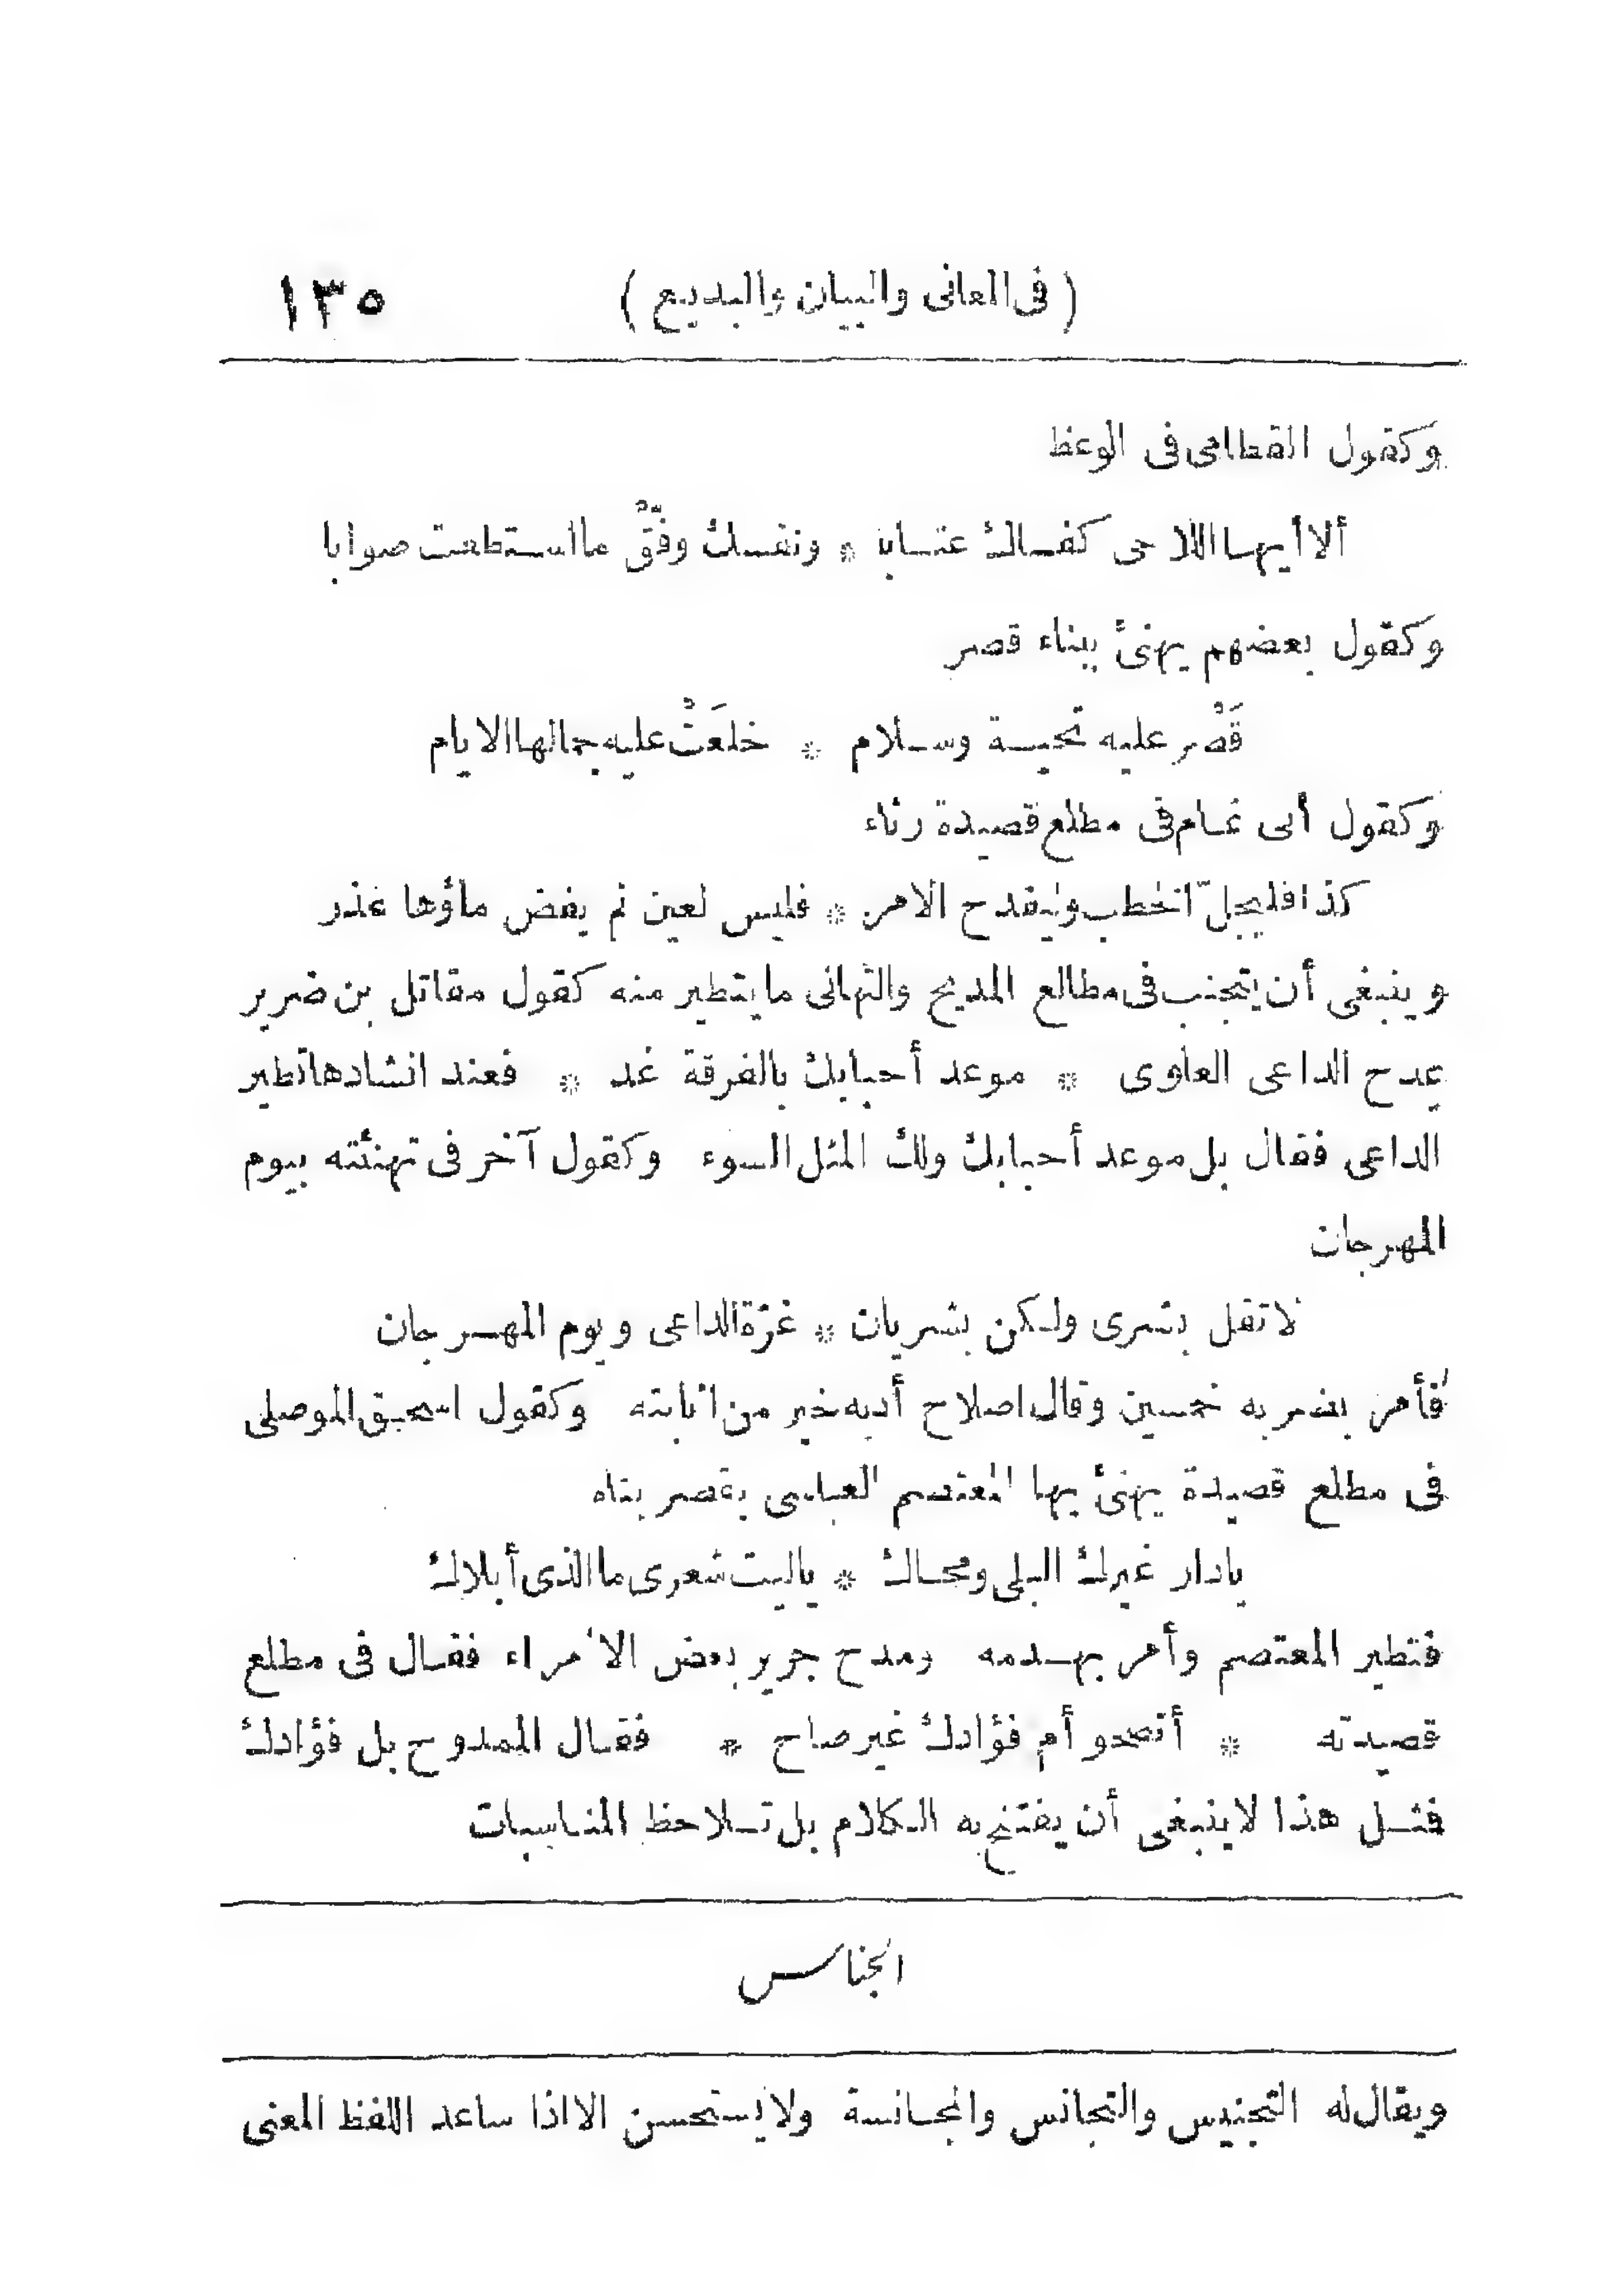 (فى المعانى والبيان والبديع) ١٣٥
وكقول القطامى فى الوعظ
ألا أيها اللاحى كفاك عتابا * ونفسك وفّقْ ما استطعت صوابا
وكقول بعضهم يهنئ ببناء قصر
قَصْر عليه تحية وسلام * خلعَتْ عليه جمالها الايام
وكقول أبى تمام فى مطلع قصيدة رثاء
كذا فليجلّ الخطب وليفدح الامر * فليس لعين لم يفض ماؤها عذر
وينبغى أن يتجنب فى مطالع المديح والتهانى ما يتطير منه كقول مقاتل بن ضرير
يمدح الداعى العلوى * موعد أحبابك بالفرقة غد * فعند انشادها تطير
الداعى فقال بل موعد أحبابك ولك المثل السوء وكقول آخر فى تهنئته بيوم
المهرجان
لا تقل بشرى ولكن بشريان * غرّة الداعى ويوم المهرجان
فأمر بضربه خمسين وقال اصلاح أدبه خير من اثابته وكقول اسحق الموصلى
فى مطلع قصيدة يهنئ بها المعتصم العباسى بقصر بناه
يادار غيرك البلى ومحاك * ياليت شعرى ما الذى أبلاك
فتطير المعتصم وأمر بهدمه ومدح جرير بعض الأمراء فقال فى مطلع
قصيدته * أتصحو أم فؤادك غير صاح * فقال الممدوح بل فؤادك
فمثل هذا لا ينبغى أن يفتتح به الكلام بل تلاحظ المناسبات
الجناس
ويقال له التجنيس والتجانس والمجانسة ولا يستحسن الا اذا ساعد اللفظ المعنى